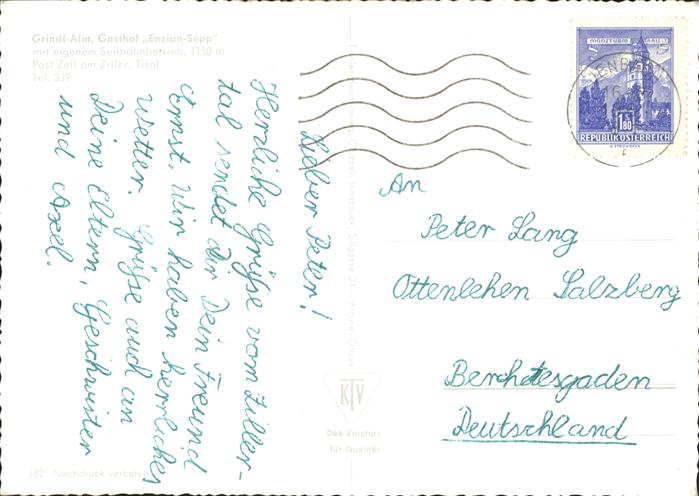 Grindl-Alm, Gasthof „Enzian-Sepp"
mit eigenem Seilbahnbetrieb, 1150 m
Post Zell am Ziller, Tirol
Tel. 339
Lieber Peter!
Herzliche Grüße vom Ziller-
tal sendet dir Dein Freund
Ernst. Wir haben herrliches
wetter. Grüße auch an
Deine Eltern, Geschwister
und Axel.
182 Nachdruck verboten
KTV
Das Zeichen
für Qualität
MÜNZTURM HALL i. T.
1.80
REPUBLIK ÖSTERREICH
An
Peter Lang
Ottenlehen Salzberg
Berchtesgaden
Deutschland